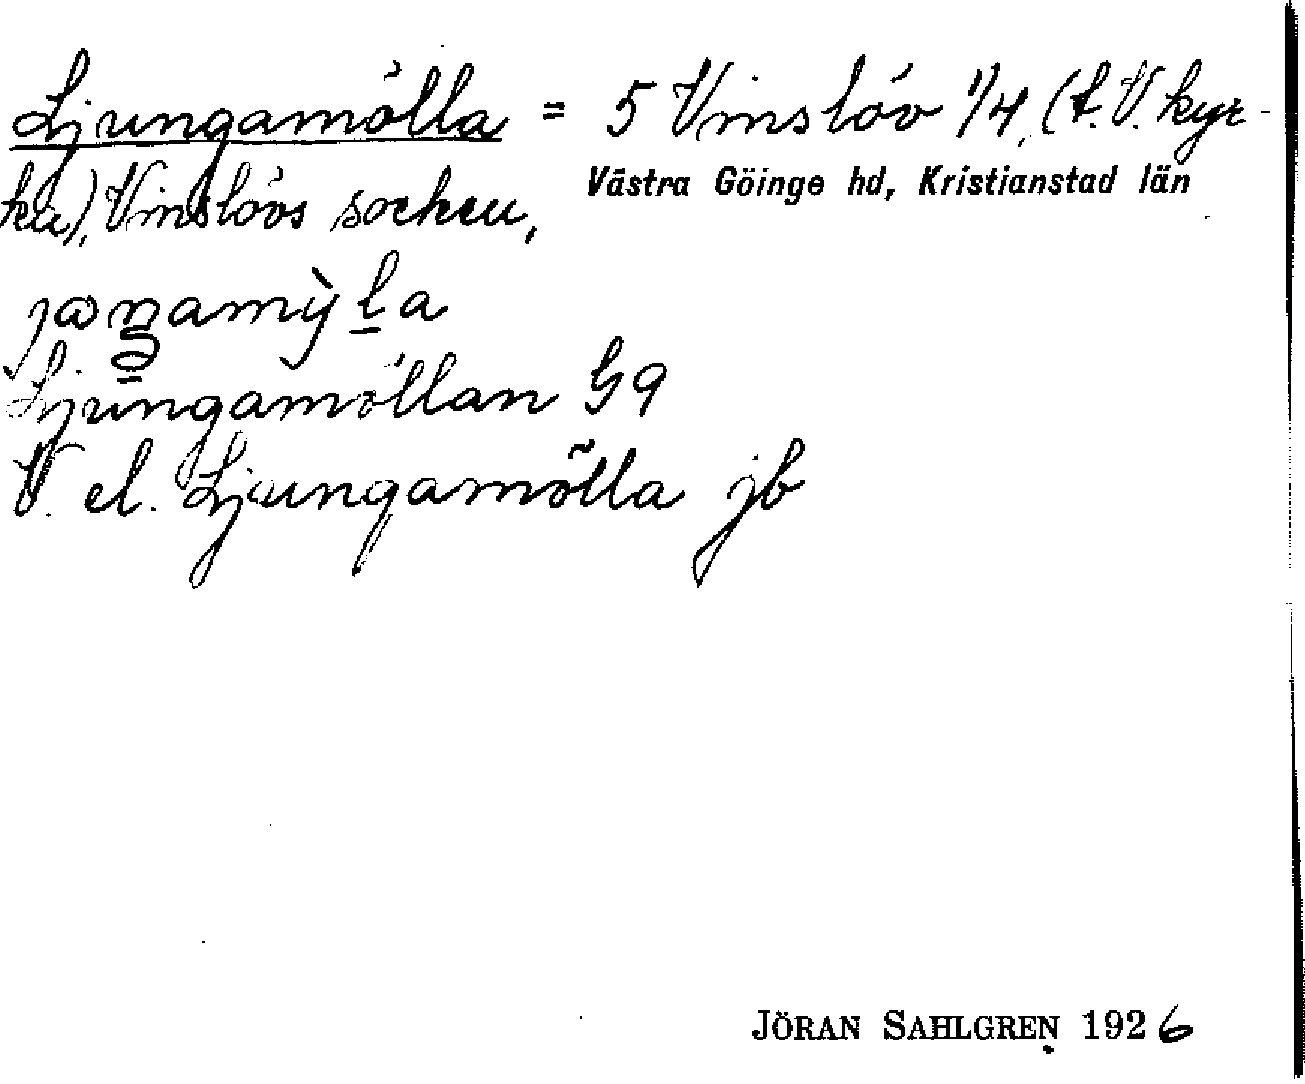 Ljungamölla = 5 Vinslöv 1/4, (t. V. kyr-
ka), Vinslövs socken, Västra Göinge hd, Kristianstad län
Ljungamöllan G9
V. el. Ljungamölla jb
JÖRAN SAHLGREN 1926